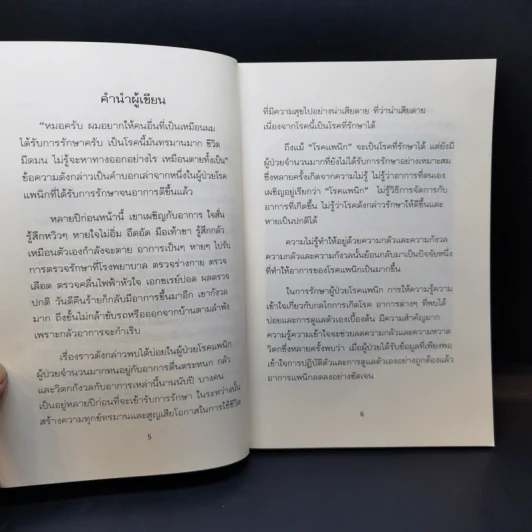 คำนำผู้เขียน
“หมอครับ ผมอยากให้คนอื่นที่เป็นเหมือนผม
ได้รับการรักษาครับ เป็นโรคนี้มันทรมานมาก ชีวิต
มืดมน ไม่รู้จะหาทางออกอย่างไร เหมือนตายทั้งเป็น”
ข้อความดังกล่าวเป็นคำบอกเล่าจากหนึ่งในผู้ป่วยโรค
แพนิกที่ได้รับการรักษาจนอาการดีขึ้นแล้ว
หลายปีก่อนหน้านี้ เขาเผชิญกับอาการ ใจสั่น
รู้สึกหวิวๆ หายใจไม่อิ่ม อึดอัด มือเท้าชา รู้สึกกลัว
เหมือนตัวเองกำลังจะตาย อาการเป็นๆ หายๆ ไปรับ
การตรวจรักษาที่โรงพยาบาล ตรวจร่างกาย ตรวจ
เลือด ตรวจคลื่นไฟฟ้าหัวใจ เอกซเรย์ปอด ผลตรวจ
ปกติ วันดีคืนร้ายก็กลับมีอาการขึ้นมาอีก เขากังวล
มาก ถึงขั้นไม่กล้าขับรถหรือออกจากบ้านตามลำพัง
เพราะกลัวอาการจะกำเริบ
เรื่องราวดังกล่าวพบได้บ่อยในผู้ป่วยโรคแพนิก
ผู้ป่วยจำนวนมากทนอยู่กับอาการตื่นตระหนก กลัว
และวิตกกังวลกับอาการเหล่านี้นานนับปี บางคน
เป็นอยู่หลายปีก่อนที่จะเข้ารับการรักษา ในระหว่างนั้น
สร้างความทุกข์ทรมานและสูญเสียโอกาสในการใช้ชีวิต
5
ที่มีความสุขไปอย่างน่าเสียดาย ที่ว่าน่าเสียดาย
เนื่องจากโรคนี้เป็นโรคที่รักษาได้
ถึงแม้ “โรคแพนิก” จะเป็นโรคที่รักษาได้ แต่ยังมี
ผู้ป่วยจำนวนมากที่ยังไม่ได้รับการรักษาอย่างเหมาะสม
ซึ่งหลายครั้งเกิดจากความไม่รู้ ไม่รู้ว่าอาการที่ตนเอง
เผชิญอยู่เรียกว่า “โรคแพนิก” ไม่รู้วิธีการจัดการกับ
อาการที่เกิดขึ้น ไม่รู้ว่าโรคดังกล่าวรักษาให้ดีขึ้นและ
หายเป็นปกติได้
ความไม่รู้ทำให้อยู่ด้วยความกลัวและความกังวล
ความกลัวและความกังวลนั้นย้อนกลับมาเป็นปัจจัยหนึ่ง
ที่ทำให้อาการของโรคแพนิกเป็นมากขึ้น
ในการรักษาผู้ป่วยโรคแพนิก การให้ความรู้ความ
เข้าใจเกี่ยวกับกลไกการเกิดโรค อาการต่างๆ ที่พบได้
บ่อยและการดูแลตัวเองเบื้องต้น มีความสำคัญมาก
ความรู้ความเข้าใจจะช่วยลดความกลัวและความหวาด
วิตกซึ่งหลายครั้งพบว่า เมื่อผู้ป่วยได้รับข้อมูลที่เพียงพอ
เข้าใจการปฏิบัติตัวและการดูแลตัวเองอย่างถูกต้องแล้ว
อาการแพนิกลดลงอย่างชัดเจน
6